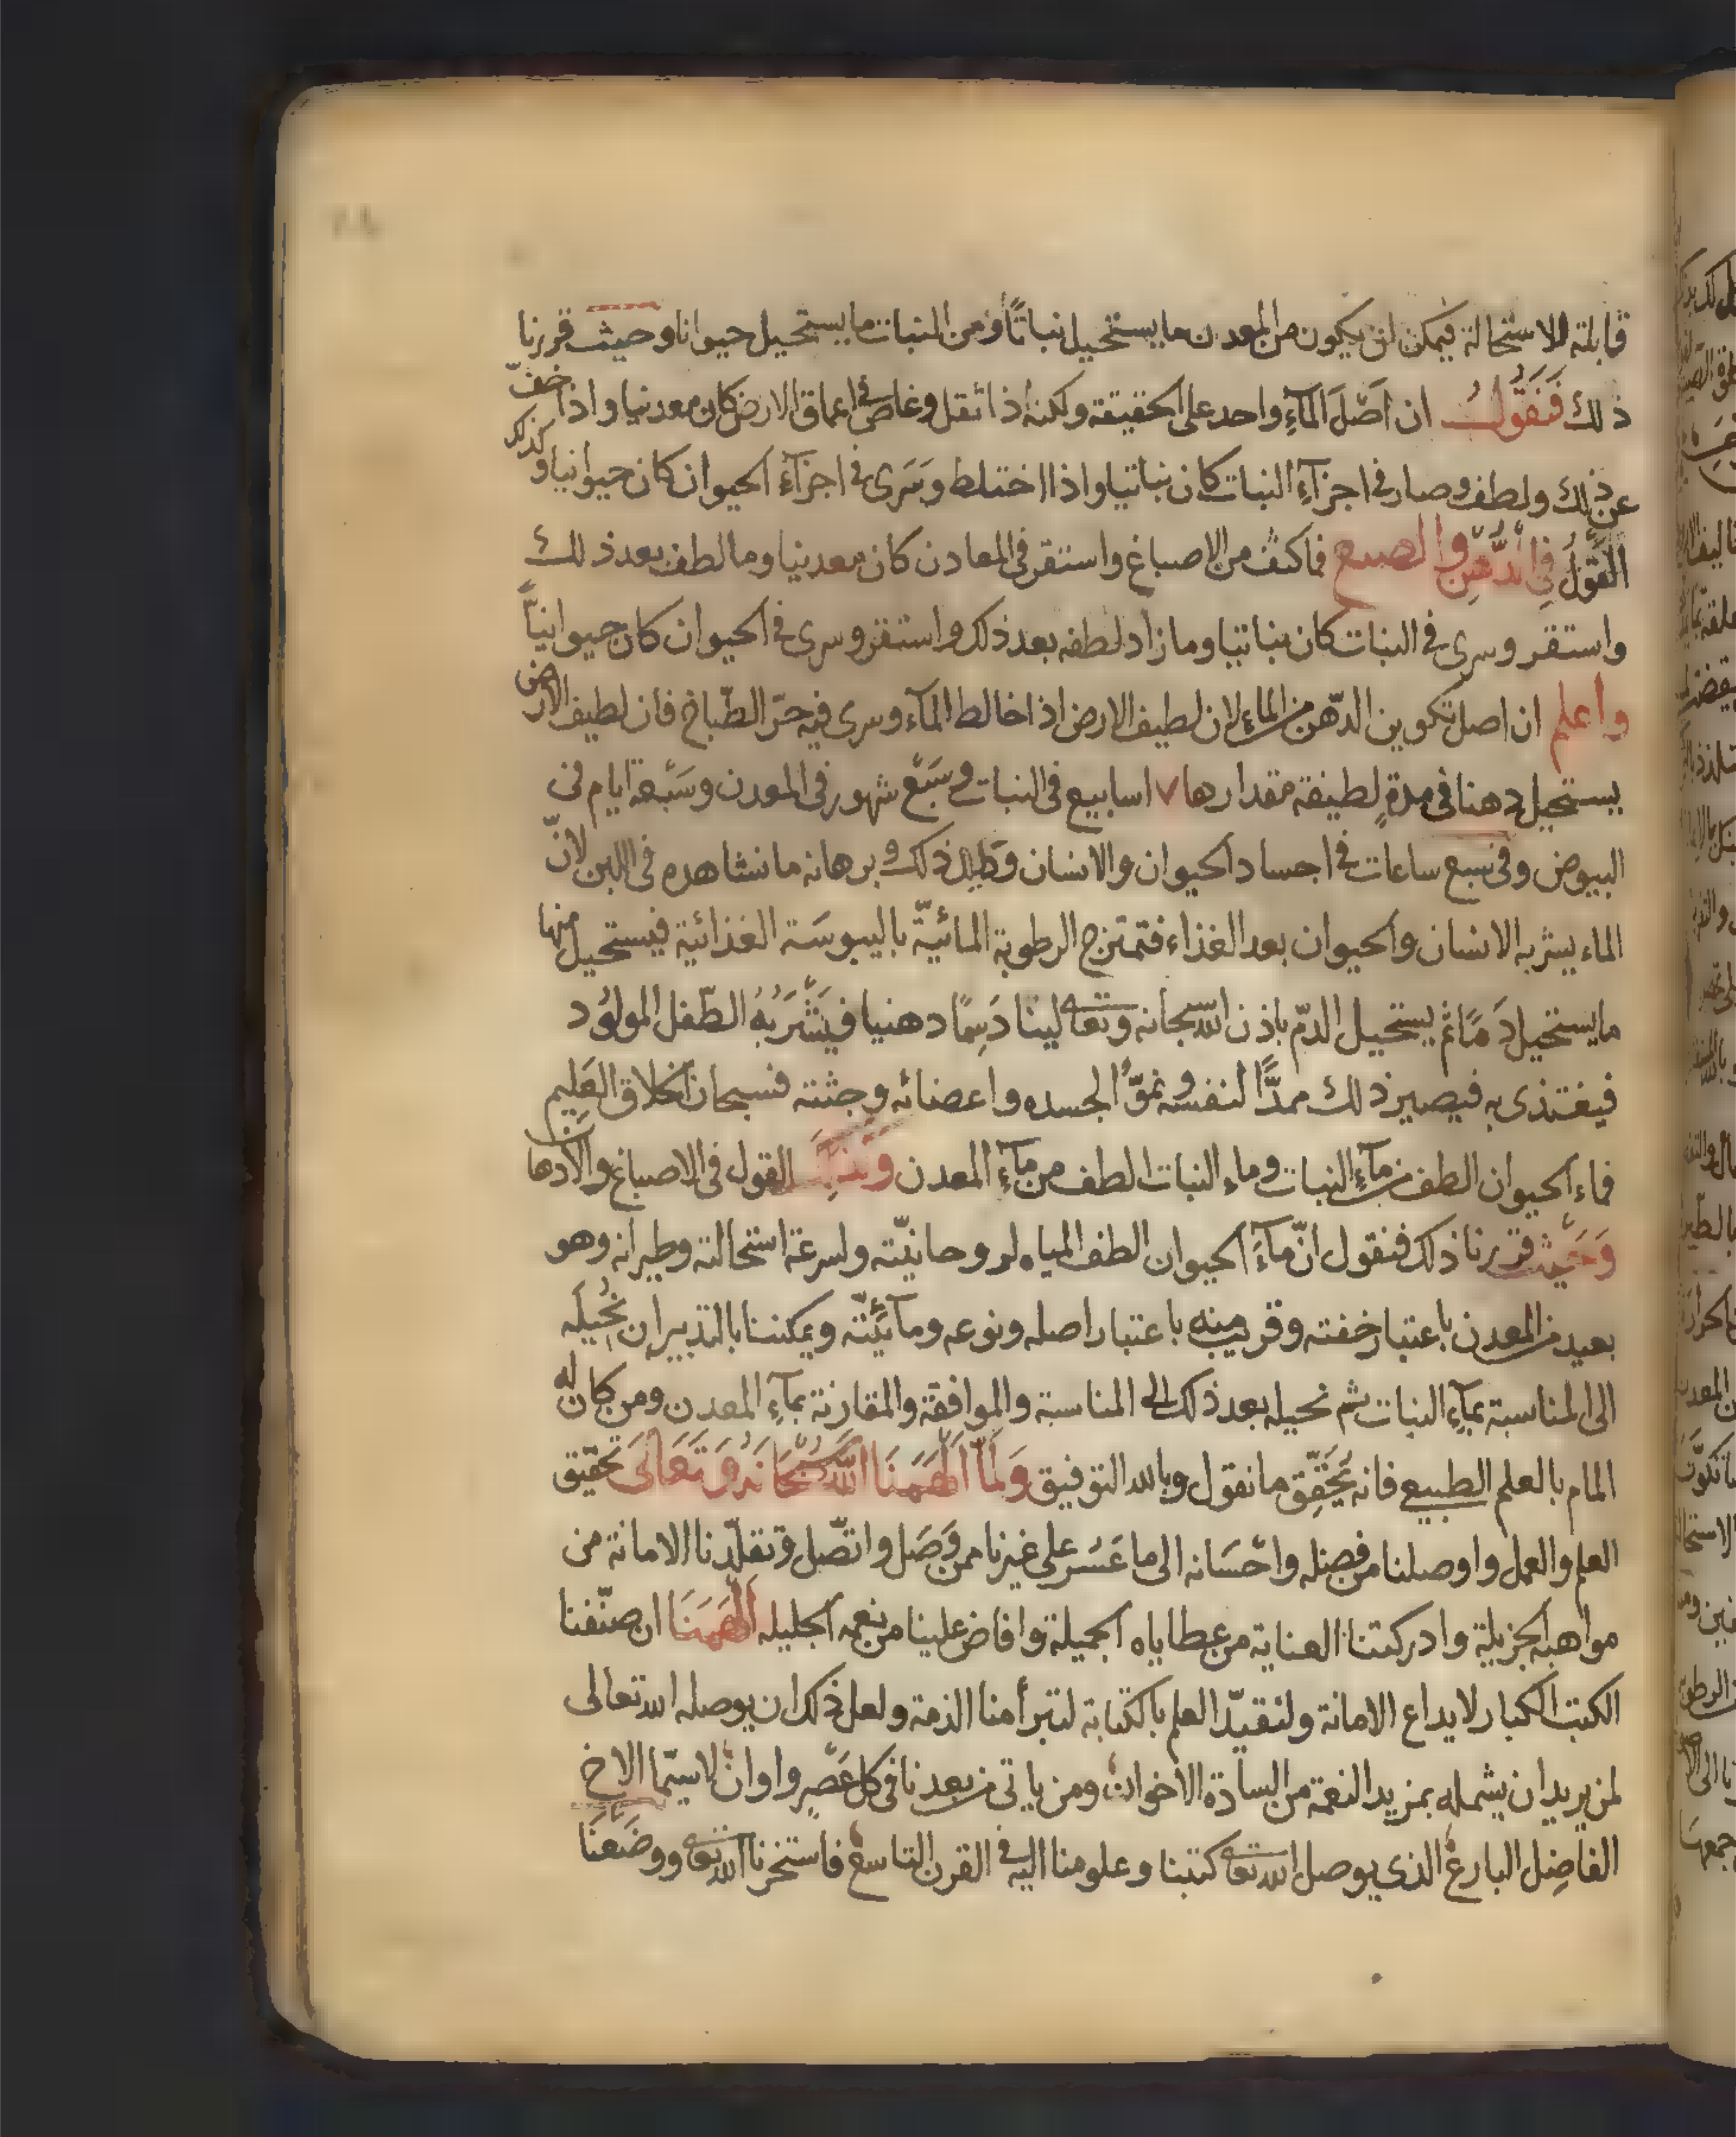 قابلة للاستحالة فيمكن ان يكون من المعدن ما يستحيل نباتًا ومن النبات ما يستحيل حيوانا وحيث قررنا
ذلك فَنَقُولُ ان اصل المآءِ واحد على الحقيقة ولكنه اذا ثقل وغاص في اعماق الارض كان معدنيا واذا خفّ
عن ذلك ولطف وصار في اجزآءِ النبات كان نباتيا واذا اختلط وسَرَى في اجزآءِ الحيوان كان حيوانيا وكذلك
القَوْلُ فِي الدُّهْنِ والصبع فما كثف من الاصباغ واستقر في المعادن كان معدنيا وما لطف بعد ذلك
واستقر وسرى في النبات كان نباتيا وما زاد لطفه بعد ذلك واستقر وسرى في الحيوان كان حيوانيًّا
واعلم ان اصل تكوين الدّهن من الماء لان لطيف الارض اذا خالط المآء وسرى فيه حرّ الطبّاخ فان لطيف الارض
يستحيل دهنا في مدةٍ لطيفة مقدارها ٧ اسابيع في النبات وفي سَبْع شهور في المعدن وسَبْعة ايام في
البيوض وفي سبع ساعات في اجساد الحيوان والانسان ودليل ذلك وبرهانه ما نشاهده في اللبن لانّ
الماء يشربه الانسان والحيوان بعد الغذاء فتمتزج الرطوبة المائيّة باليبوسَة الغذائية فيستحيل منها
ما يستحيل دَمًا ثم يستحيل الدّم باذن الله سبحانه وتعالى لبنا دَسِمًا دهنيا فيَشْرَبُهُ الطّفل المولوُد
فيغتذى به فيصير ذلك ممدًّا لنفسه ونموًّا لجسده واعضائه وجثته فسبحان الخلاق العَلِيم
فماء الحيوان الطف من مآءِ النبات وماء النبات الطف من مآءِ المعدن القول في الاصباغ والادها
وَحَيْث قررنا ذلك فنقول انّ مآءَ الحيوان الطف المياه لروحانيّته ولسرعة استحالته وطيرانه وهو
بعيد من المعدن باعتبار خفته وقريب منه باعتبار اصله ونوعه ومآئيّته ويمكننا بالتدبير ان نُحِيلَه
الى المناسبة بمآءِ النبات ثم نحيله بعد ذلك الى المناسبة والموافقة والمقارنة بمآءِ المعدن ومن كان له
المام بالعلم الطبيعي فانه يُحَقِّق ما نقول وبالله التوفيق وَلَمَّا اَلْهَمَنَا اللّهُ سُبْحَانَهُ وَتَعَالَى تحقيق
العلم والعمل واوصلنا من فضله واحْسَانه الى ما عَسُر على غيرنا ممن وَصَل واتّصل وتقلّدنا الامانة من
مواهبه الجزيلة وادركتنا العناية من عطاياه الجميلة وافاض علينا من نعمه الجليله اَلْهَمَنَا ان صنّفنا
الكتب الكبار لايداع الامانة ولتقيّد العلم بالكتابة لتبرأ منا الذمة ولعل ذلك ان يوصله الله تعالى
لمن يريد ان يشمله بمزيد النعمة من السادة الاخوان ومن ياتى من بعدنا في كل عَصْرٍ واوان لاسيّما الاخ
الفاضِل البارع الذى يوصل الله تعالى كتبنا وعلومنا اليه في القرن التاسع فاستخرنا الله تعالى ووضَعْنَا